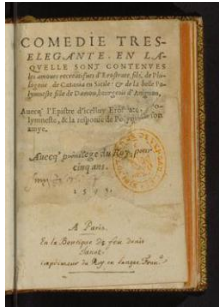 COMEDIE TRES-
ELEGANTE, EN LA-
QVELLE SONT CONTENVES
les amours recreatifues d'Erostrate filz de Phi-
logone de Catania en Sicile: & de la belle Po-
lymneste fille de Damon bourgeois d'Avignon,
Auecq' l'Epistre d'icelluy
& la response de
Auecq' priuilege du Roy, pour
cinq ans.
A Paris.
En la Boutique de feu denis
Ianot.
imprimeur du Roy en langue